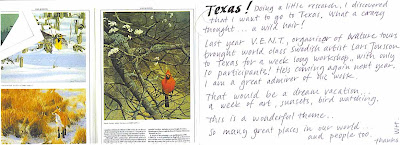 Texas! Doing a little research, I discovered
that I want to go to Texas. What a crazy
thought... a wild hair!
Last year V.E.N.T., organiser of nature tours
brought world class Swedish artist Lars Jonsson
to Texas for a week long workshop, with only
10 participants! He's coming again next year.
I am a great admirer of his work.
That would be a dream vacation...
a week of art, sunsets, bird watching.
This is a wonderful theme..
So many great places in our world...
and people too.
Thanks